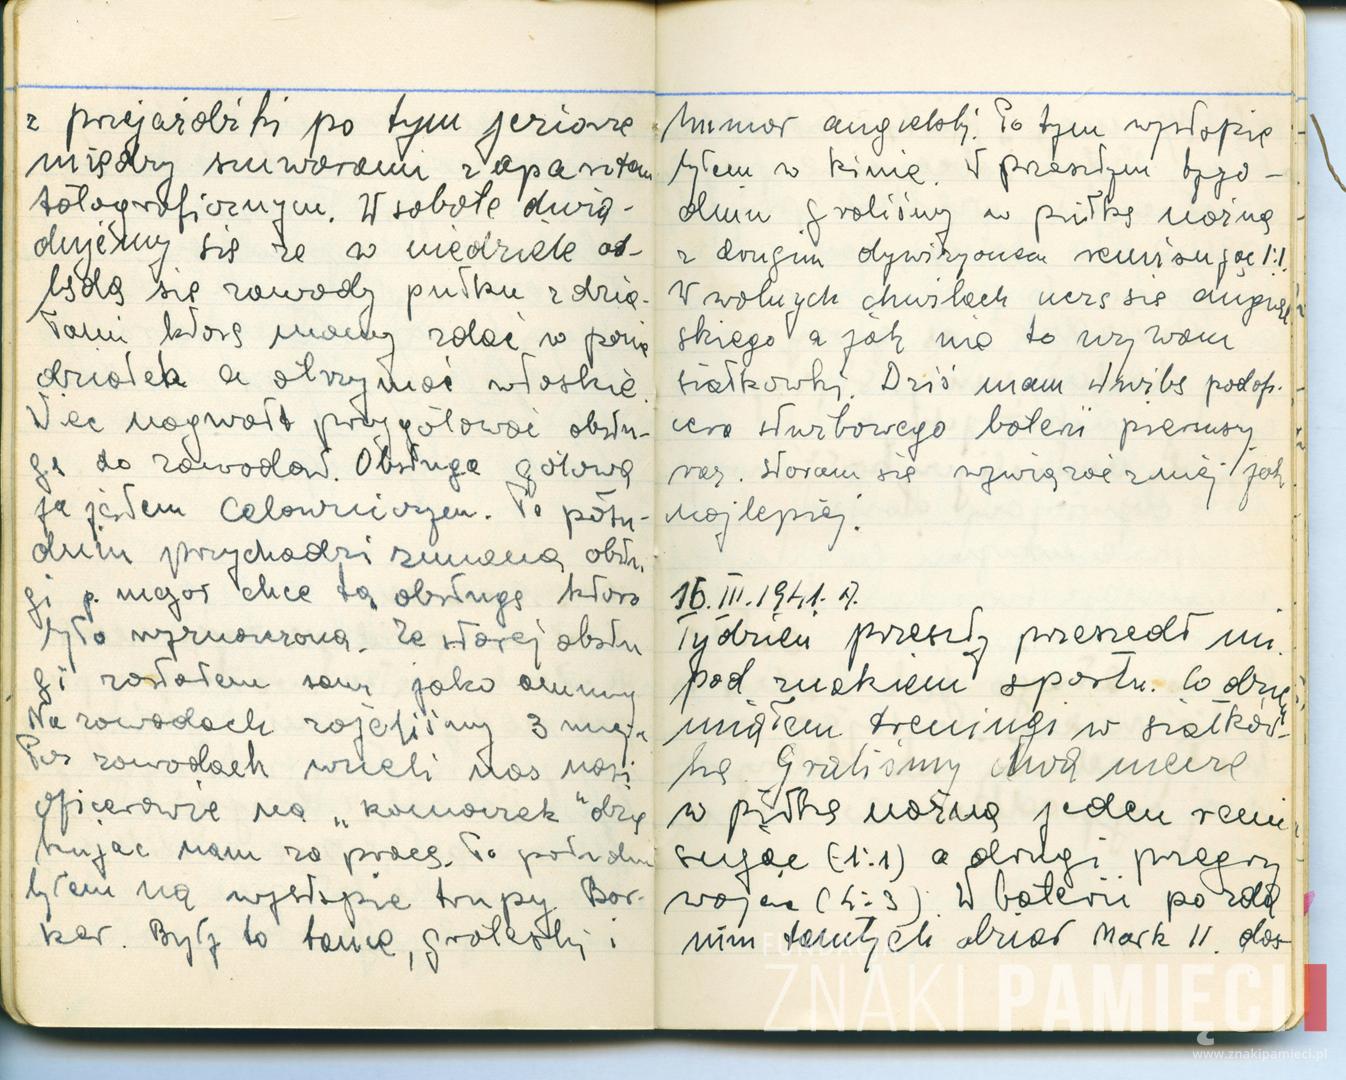 z przejażdżki po tym jeziorze
między szuwarami z aparatem
fotograficznym. W sobotę dowia-
dujemy się że w niedziele od-
będą się zawody pułku z dzia-
łami które mamy zdać w ponie
działek a otrzymać włoskie.
Więc nagwałt przygotować obsłu-
gę do zawodów. Obsługa gotowa
ja jestem celowniczym. Po połu-
dniu przychodzi zmiana obsłu
gi p. major chce tą obsługę która
była wyznaczona. Ze starej obsłu
gi zostałem sam jako
Na zawodach zajeliśmy 3 miejs
Po zawodach wzieli nas nasi
oficerowie na „komarek" dzię
kując nam za pracę. Po południu
byłem na występie trupy Bor-
kar. Były to tańce, groteski i
humor angielski. Po tym występie
byłem w kinie. W przeszłym tygo-
dniu graliśmy w piłkę nożną
z drugim dywizyonem remisując 1:1.
W wolnych chwilach uczę się angiel
skiego a jak nie to używam
siatkówki. Dziś mam służbę podofi-
cera służbowego baterii pierwszy
raz. Staram się wywiązać z niej jak
najlepiej.
16.III.1941. r.
Tydzień przeszły przeszedł mi
pod znakiem sportu. Co dzień
miałem treningi w siatków-
kę. Graliśmy dwa mecze
w piłkę nożną jeden remi
sując (1:1) a drugi przegry
wając (4:3). W baterii po zda
niu tamtych dział Mark II. dos-
FUNDACJA
ZNAKI PAMIĘCI
www.znakipamieci.pl